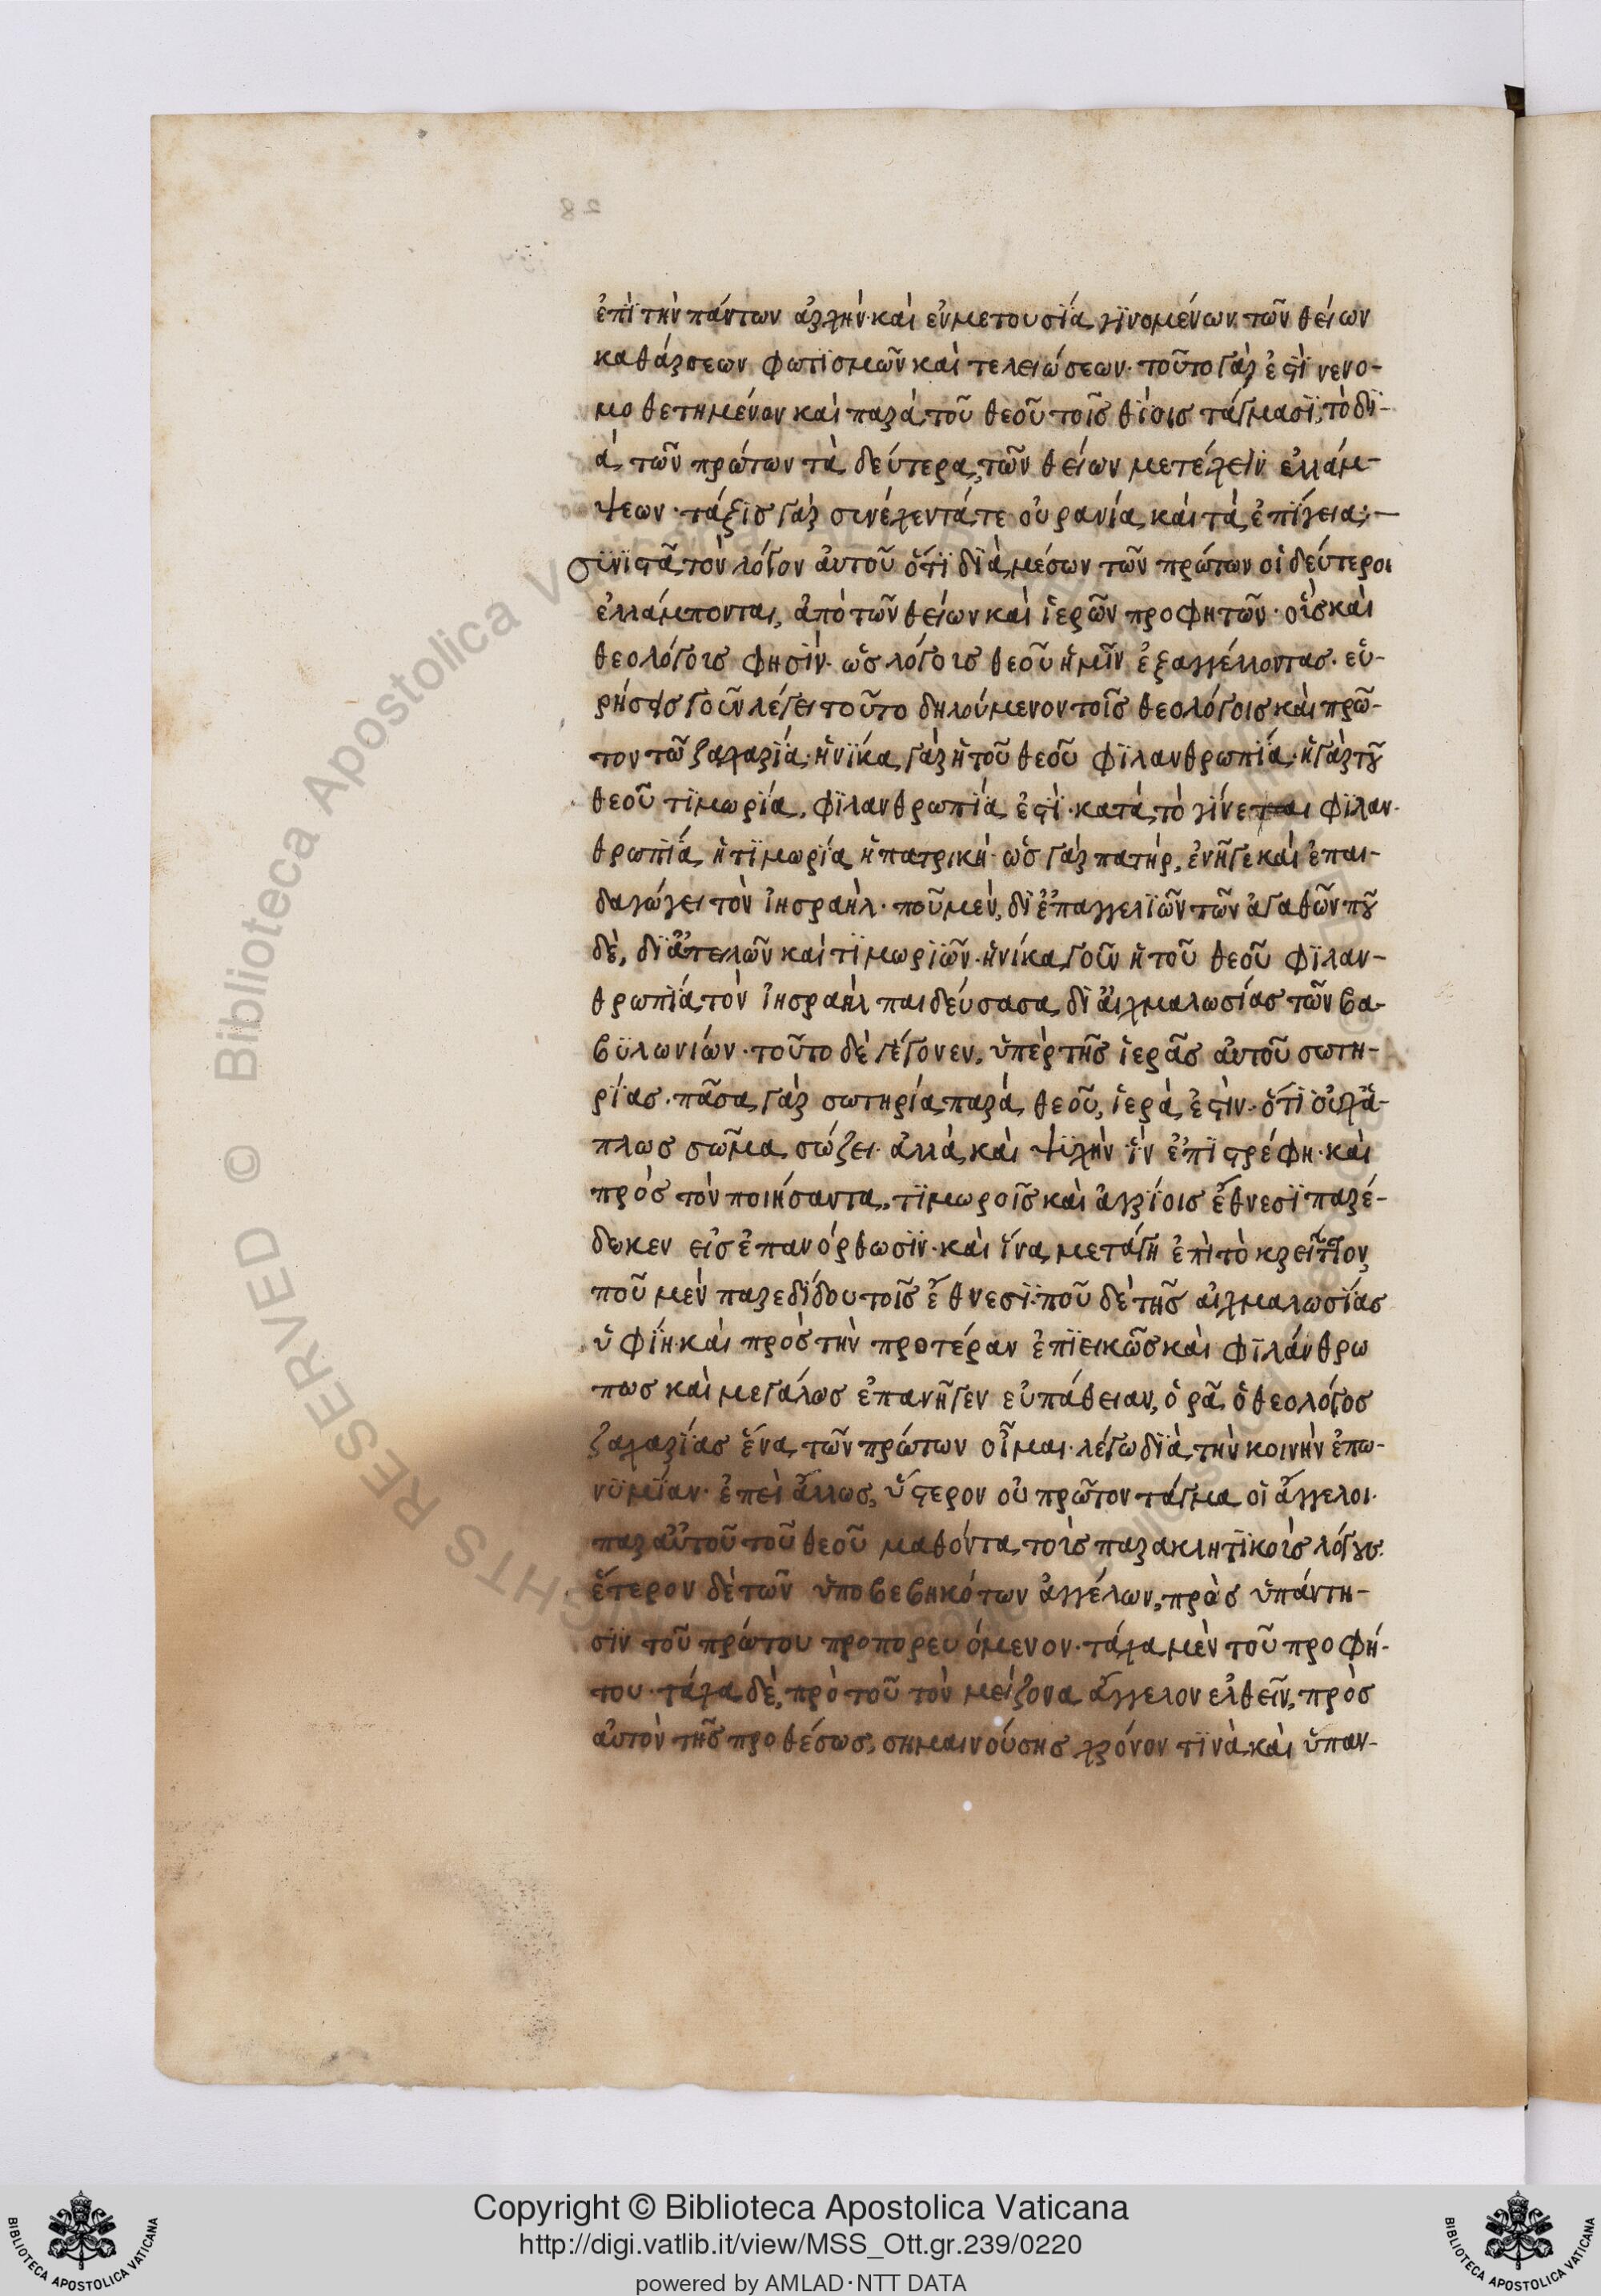 ἐπὶ τὴν πάντων ἀρχήν· καὶ ἐν μετουσία γινομένων τῶν θείων
καθάρσεων φωτισμῶν καὶ τελειώσεων· τοῦτο γάρ ἐστὶ νενο-
μοθετημένον καὶ παρὰ τοῦ θεοῦ τοῖς θίοις τάγμασι, τὸ δι-
ὰ τῶν πρώτων τὰ δεύτερα, τῶν θείων μετέχειν ἐλλάμ-
ψεων· τάξις γὰρ συνέχει τά τε οὐρανία καὶ τὰ ἐπίγεια:—
συνιστᾶ τὸν λόγον αὐτοῦ ὅτι διὰ μέσων τῶν πρώτων οἱ δεύτεροι
ἐλλάμπονται, ἀπὸ τῶν θείων καὶ ἱερῶν προφητῶν· οἷς καὶ
θεολόγοις φησίν· ὡς λόγοις θεοῦ ἡμῖν ἐξαγγέλλοντας· εὑ-
ρήσεις γοῦν λέγει τοῦτο δηλούμενον τοῖς θεολόγοις καὶ πρῶ-
τον τῶ ζαχαρία· ἡνίκα γὰρ ἡ τοῦ θεοῦ φιλανθρωπία· ἡ γὰρ τοῦ
θεοῦ τιμωρία, φιλανθρωπία ἐστὶ· κατὰ τὸ γίνεται φιλαν-
θρωπία ἡ τιμωρία ἡ πατρική· ὡς γὰρ πατήρ, ἐνῆγε καὶ ἐπαι-
δαγώγει τὸν ἰησραήλ· ποῦ μὲν, δι ἐπαγγελιῶν τῶν ἀγαθῶν ποῦ
δὲ, δι ἀπειλῶν καὶ τιμωριῶν· ἡνίκα γοῦν ἡ τοῦ θεοῦ φιλαν-
θρωπία τὸν ἰησραήλ παιδεύσασα δι αἰχμαλωσίας τῶν βα-
βυλωνίων· τοῦτο δὲ γέγονεν, ὑπὲρ τῆς ἱερᾶς αὐτοῦ σωτη-
ρίας· πᾶσα γὰρ σωτηρία παρὰ θεοῦ, ἱερὰ ἐστὶν· ὅτι οὐχ ἁ-
πλῶς σῶμα σώζει· ἀλλὰ καὶ ψυχὴν ἣν ἐπιστρέφη· καὶ
πρὸς τὸν ποιήσαντα, τιμωροῖς καὶ ἀγρίοις ἔθνεσι παρέ-
δωκεν εἰς ἐπανόρθωσιν· καὶ ἵνα μετάγη ἐπὶ τὸ κρεῖττον,
ποῦ μὲν παρεδίδου τοῖς ἔθνεσι· ποῦ δὲ τῆς αἰχμαλωσίας
ὑφίη· καὶ πρὸς τὴν προτέραν ἐπιεικῶς καὶ φιλάνθρω
πως καὶ μεγάλως ἐπανῆγεν εὐπάθειαν, ὁρᾶ ὁ θεολόγος
ζαχαρίας ἕνα τῶν πρώτων οἶμαι· λέγω διὰ τὴν κοινὴν ἐπω-
νυμίαν· ἐπεὶ ἄλλως, ὕστερον οὐ πρῶτον τάγμα οἱ ἄγγελοι·
παρ αὐτοῦ τοῦ θεοῦ μαθόντα τοὺς παρακλητικοὺς λόγους.
ἕτερον δὲ τῶν ὑποβεβηκότων ἀγγέλων, πρὸς ὑπάντη-
σιν τοῦ πρώτου προπορευόμενον· τάχα μὲν τοῦ προφή-
του· τάχα δὲ, πρὸ τοῦ τὸν μείζονα ἄγγελον ἐλθεῖν, πρὸς
αὐτὸν τῆς προθέσως, σημαινούσης χρόνον τινὰ καὶ ὑπαν-
Copyright © Biblioteca Apostolica Vaticana
http://digi.vatlib.it/view/MSS_Ott.gr.239/0220
powered by AMLAD·NTT DATA